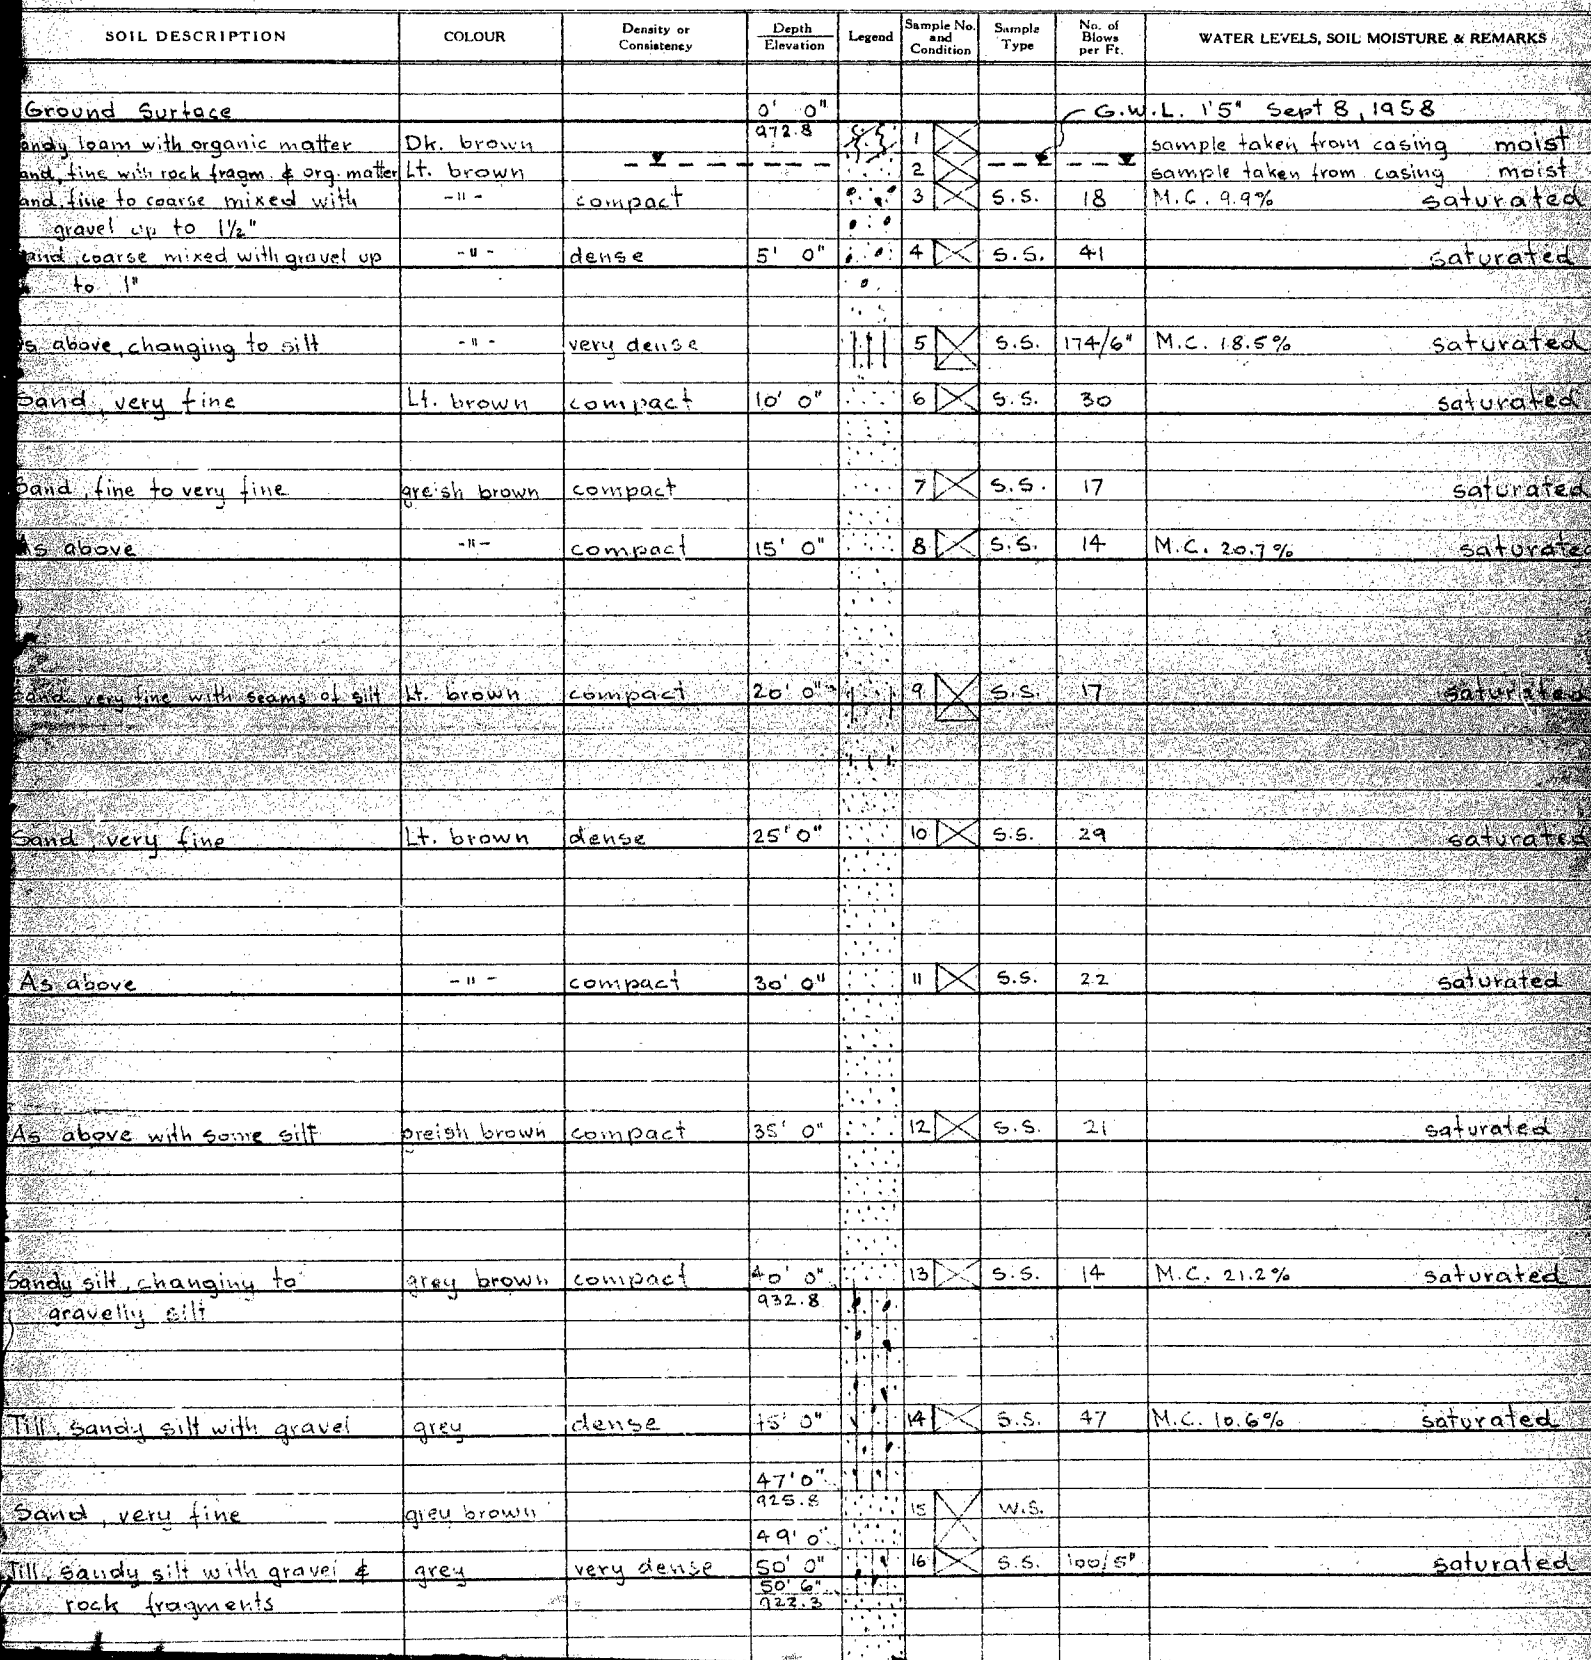 SOIL DESCRIPTION COLOUR Density or Consistency Depth Elevation Legend Sample No. and Condition Sample Type No. of Blows per Ft. WATER LEVELS, SOIL MOISTURE & REMARKS
Ground Surface 0' 0" G.W.L. 1'5" Sept 8, 1958
972.8
andy loam with organic matter Dk. brown 1 sample taken from casing moist
and, fine with rock fragm. & org. matter Lt. brown 2 sample taken from casing moist
and, fine to coarse mixed with -"- compact 3 S.S. 18 M.C. 9.9% saturated
gravel up to 1½"
and, coarse mixed with gravel up -"- dense 5' 0" 4 S.S. 41 saturated
to 1"
s above, changing to silt -"- very dense 5 S.S. 174/6" M.C. 18.5% saturated
Sand, very fine Lt. brown compact 10' 0" 6 S.S. 30 saturated
Sand, fine to very fine greish brown compact 7 S.S. 17 saturated
As above -"- compact 15' 0" 8 S.S. 14 M.C. 20.7% saturated
Sand very fine with seams of silt Lt. brown compact 20' 0" 9 S.S. 17 saturated
Sand, very fine Lt. brown dense 25' 0" 10 S.S. 29 saturated
As above -"- compact 30' 0" 11 S.S. 22 saturated
As above with some silt greish brown compact 35' 0" 12 S.S. 21 saturated
Sandy silt, changing to grey brown compact 40' 0" 13 S.S. 14 M.C. 21.2% saturated
932.8
gravelly silt
Till, sandy silt with gravel grey dense 45' 0" 14 S.S. 47 M.C. 10.6% saturated
47' 0"
925.8
Sand, very fine grey brown 15 W.S.
49' 0"
Till, sandy silt with gravel & grey very dense 50' 0" 16 S.S. 100/5" saturated
50' 6"
rock fragments 922.3